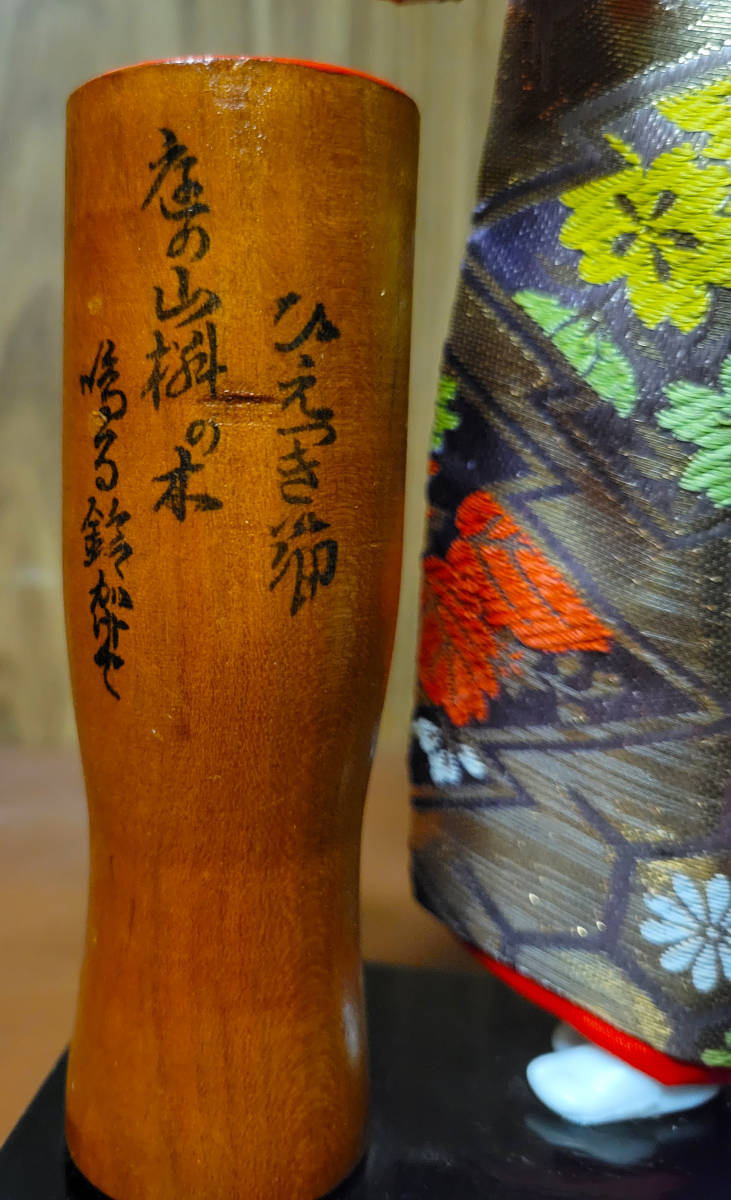 ひえつき節
庭の山椒の木
鳴る鈴かけて